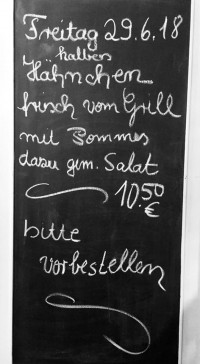 Freitag 29.6.18
halbers
Hähnchen...
frisch vom Grill
mit Pommes
dazu gem. Salat
10.50
€
bitte
vorbestellen